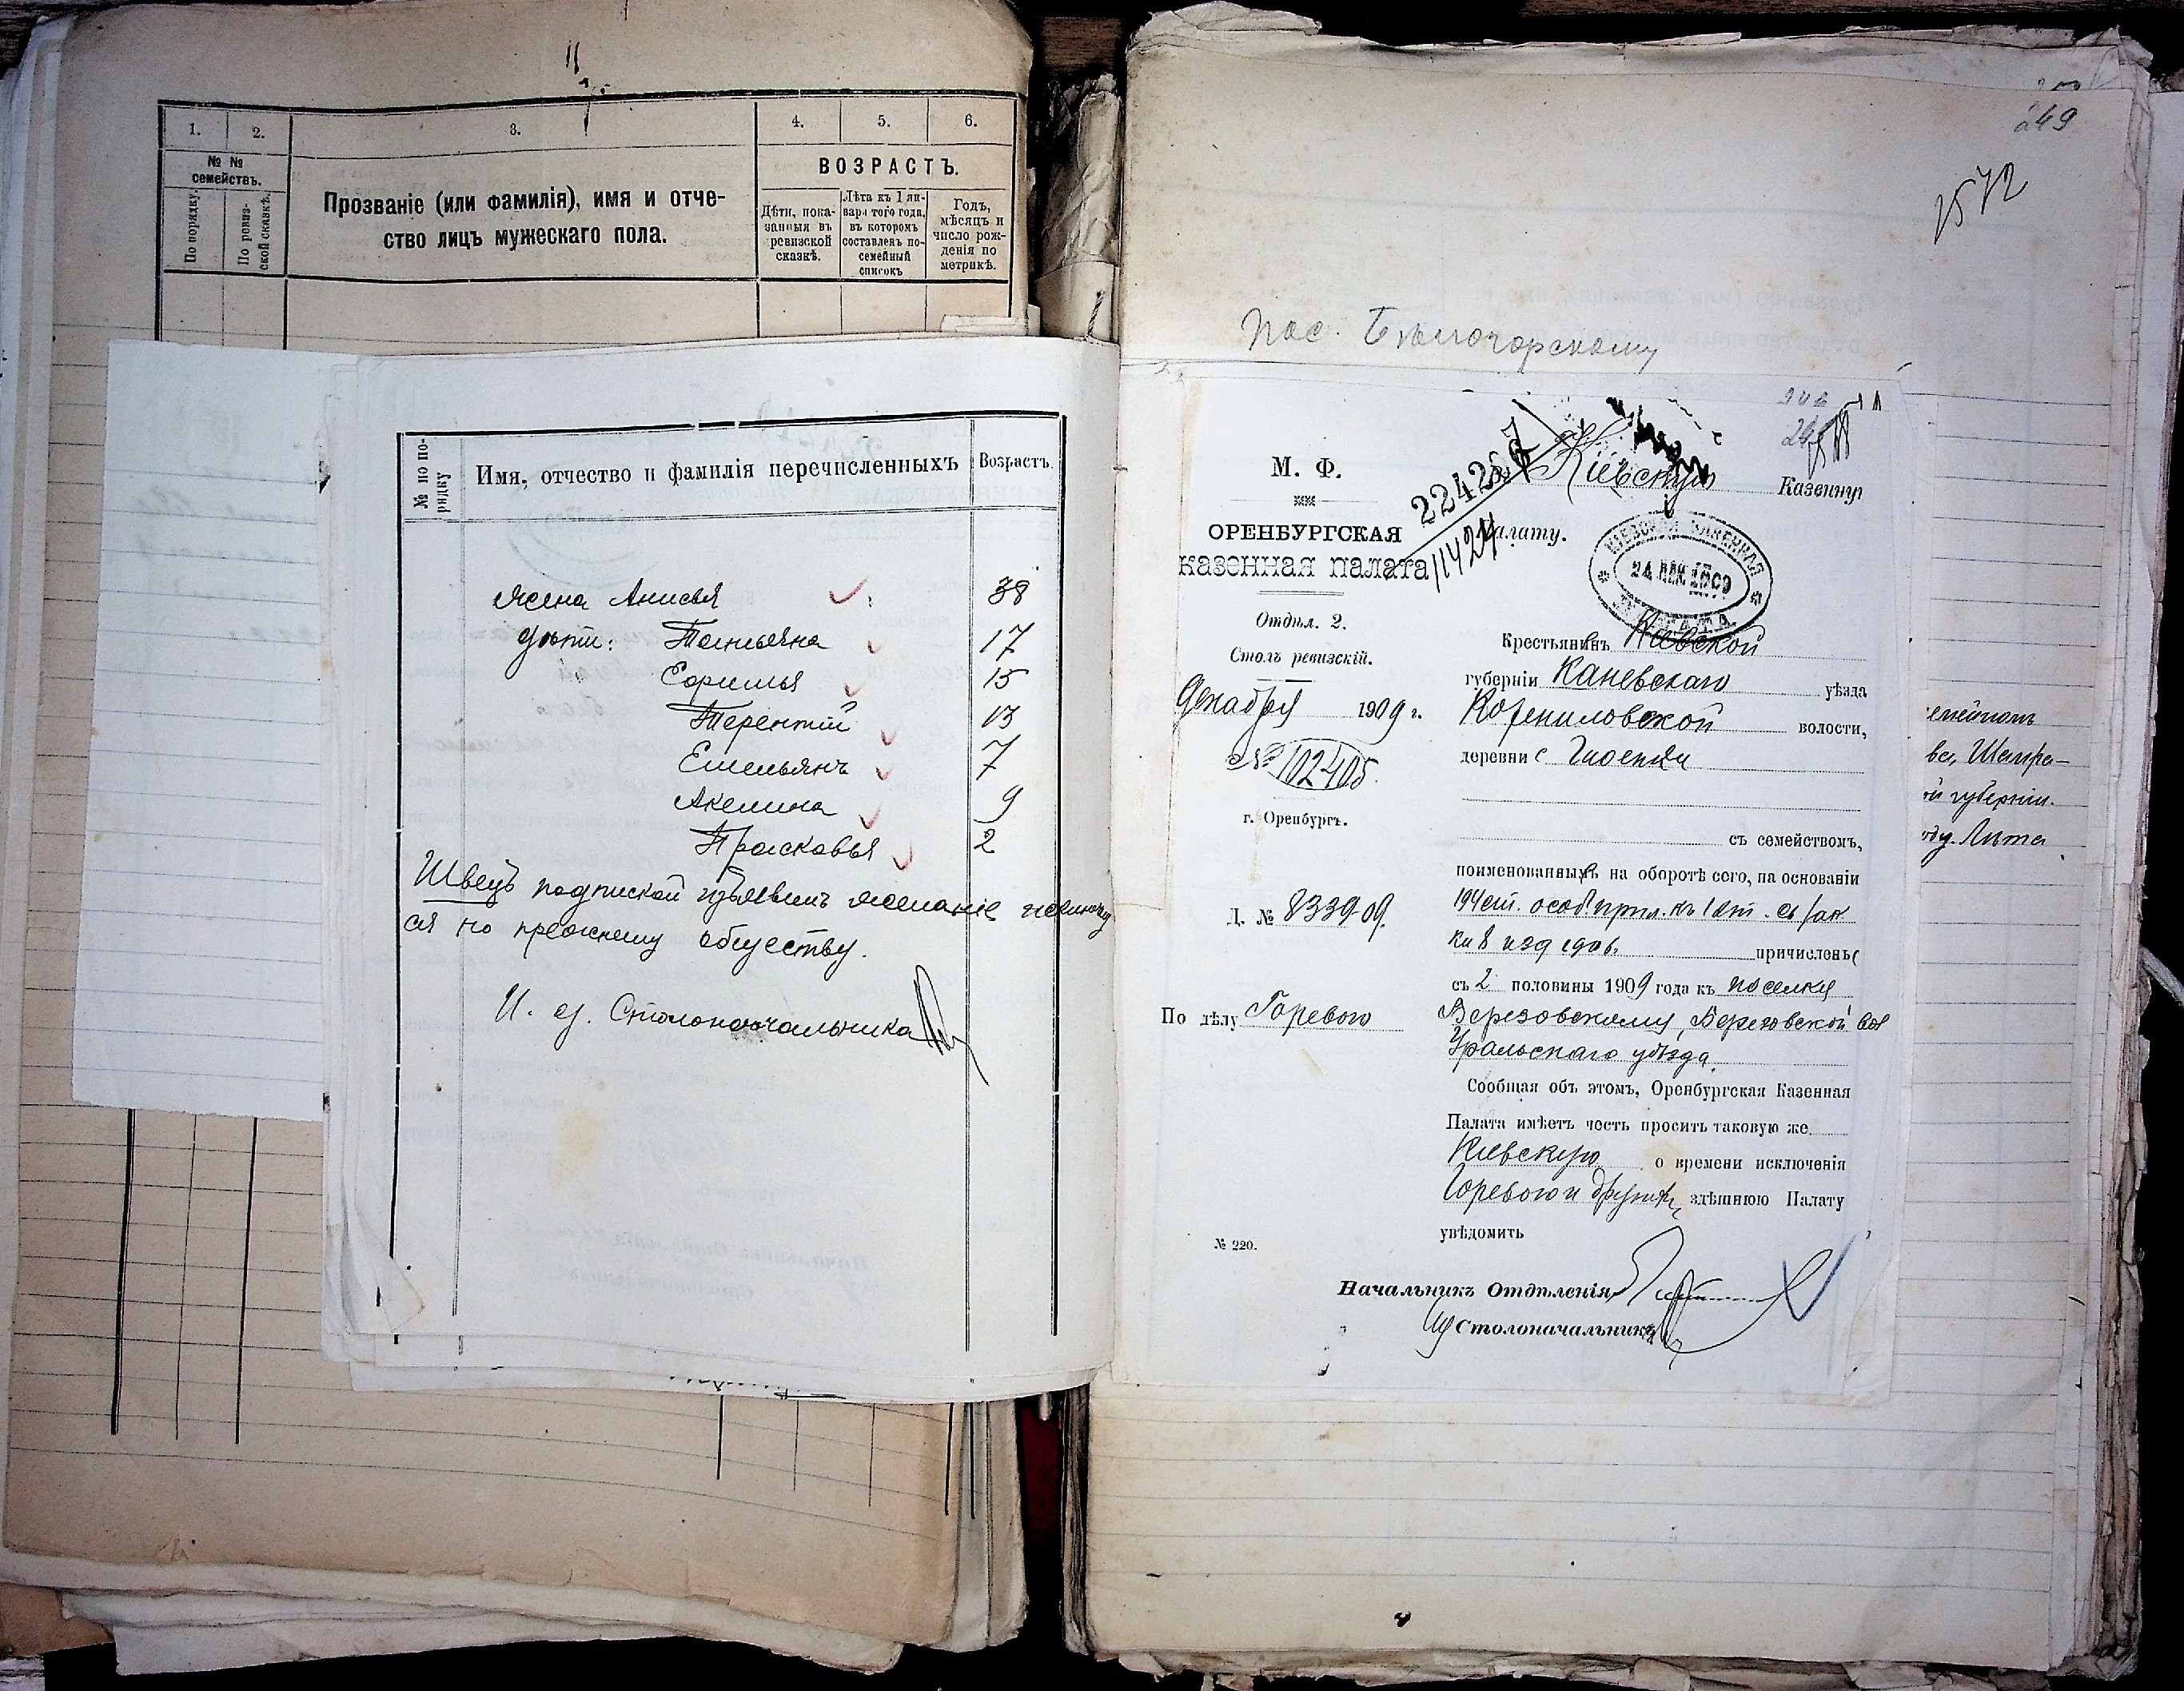 1. 2. 3. 4. 5. 6.
№ № семействъ.
По порядку.
По ревиз-
ской сказкѣ.
Прозваніе (или фамилія), имя и отче-
ство лицъ мужескаго пола.
ВОЗРАСТЪ.
Дѣти, пока-
занныя въ
ревизской
сказкѣ.
Лѣта къ 1 ян-
варя того года,
въ которомъ
составленъ по-
семейный
списокъ
Годъ,
мѣсяцъ и
число рож-
денія по
метрикѣ.
№ по по-
рядку
Имя, отчество и фамилія перечисленныхъ
Возрастъ.
жена Анисья 38
дѣти: Татьяна 17
15
Терентій 13
Емельянъ 7
Акелина 9
Прасковья 2
Швецъ подпиской изъявилъ желаніе
ся по прежнему обществу.
И. д. Столоначальника
249
1572
пос. Бѣлогорскому
М. Ф.
ОРЕНБУРГСКАЯ
казенная палата
Отдѣл. 2.
Столъ ревизскій.
Декабря 1909 г.
№ 102405.
г. Оренбургъ.
Д. № 8339-09.
По дѣлу Горевого
№ 220.
11424
Кіевскую Казенну
Палату.
КІЕВСКАЯ КАЗЕННАЯ
ПАЛАТА
Крестьянинъ Кіевской
губерніи Каневскаго уѣзда
волости,
деревни с
съ семействомъ,
поименованнымъ на оборотѣ сего, на основаніи
194 ст. особ прил. къ 1 ст.
изд 1906. причисленъ
съ 2 половины 1909 года къ поселку
Березовскому, Березовской вол
Уральскаго уѣзда.
Сообщая объ этомъ, Оренбургская Казенная
Палата имѣетъ честь просить таковую же
Кіевскую о времени исключенія
Горевого и другихъ, здѣшнюю Палату
увѣдомить
Начальникъ Отдѣленія
Столоначальникъ
губерніи.